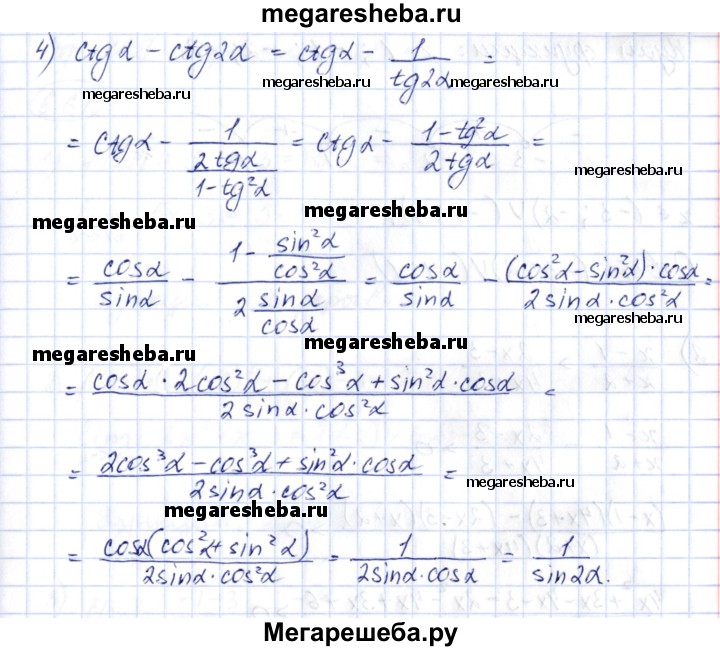 megaresheba.ru
4) ctgα − ctg2α = ctgα − 1/tg2α =
megaresheba.ru megaresheba.ru megaresheba.ru
= ctgα − 1/(2tgα/(1−tg²α)) = ctgα − (1−tg²α)/(2tgα) =
megaresheba.ru
megaresheba.ru megaresheba.ru
= cosα/sinα − (1 − sin²α/cos²α)/(2 sinα/cosα) = cosα/sinα − ((cos²α−sin²α)·cosα)/(2sinα·cos²α) =
megaresheba.ru
megaresheba.ru megaresheba.ru
= (cosα · 2cos²α − cos³α + sin²α·cosα)/(2 sinα·cos²α) =
= (2cos³α − cos³α + sin²α·cosα)/(2sinα·cos²α) =
megaresheba.ru
megaresheba.ru
= (cosα(cos²α + sin²α))/(2sinα·cos²α) = 1/(2sinα·cosα) = 1/sin2α.
megaresheba.ru megaresheba.ru
Мегарешеба.ру